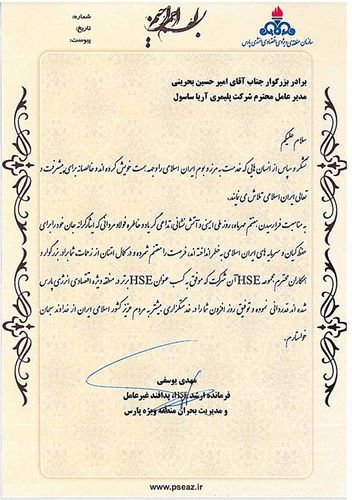 بسم الله الرحمن الرحیم
شماره:
تاریخ:
پیوست:
سازمان منطقه ویژه اقتصادی انرژی پارس
برادر بزرگوار جناب آقای امیر حسین بحرینی
مدیر عامل محترم شرکت پلیمری آریا ساسول
سلام علیکم
تشکر و سپاس از انسان هایی که خدمت به مرز و بوم ایران اسلامی را وجهه همت خویش کرده اند و خالصانه برای پیشرفت و
تعالی ایران اسلامی تلاش می نمایند.
به مناسبت فرا رسیدن، هفتم مهرماه، روز ملی ایمنی و آتش نشانی، تداعی گر یاد و خاطره فولاد مردانی که ایثارگرانه جان خود را برای
حفظ کیان و سرمایه های ایران اسلامی به خطر انداخته اند، فرصت را مغتنم شمرده و در کمال امتنان از زحمات شما برادر بزرگوار و
همکاران محترم مجموعه HSE آن شرکت که موفق به کسب عنوان HSE برتر در منطقه ویژه اقتصادی انرژی پارس
شده اند قدردانی نموده و توفیق روز افزون شما را در خدمتگزاری بیشتر به مردم عزیز کشور اسلامی ایران از خداوند سبحان
خواستارم.
مهدی یوسفی
فرمانده ارشد HSE، پدافند غیرعامل
و مدیریت بحران منطقه ویژه پارس
www.pseaz.ir